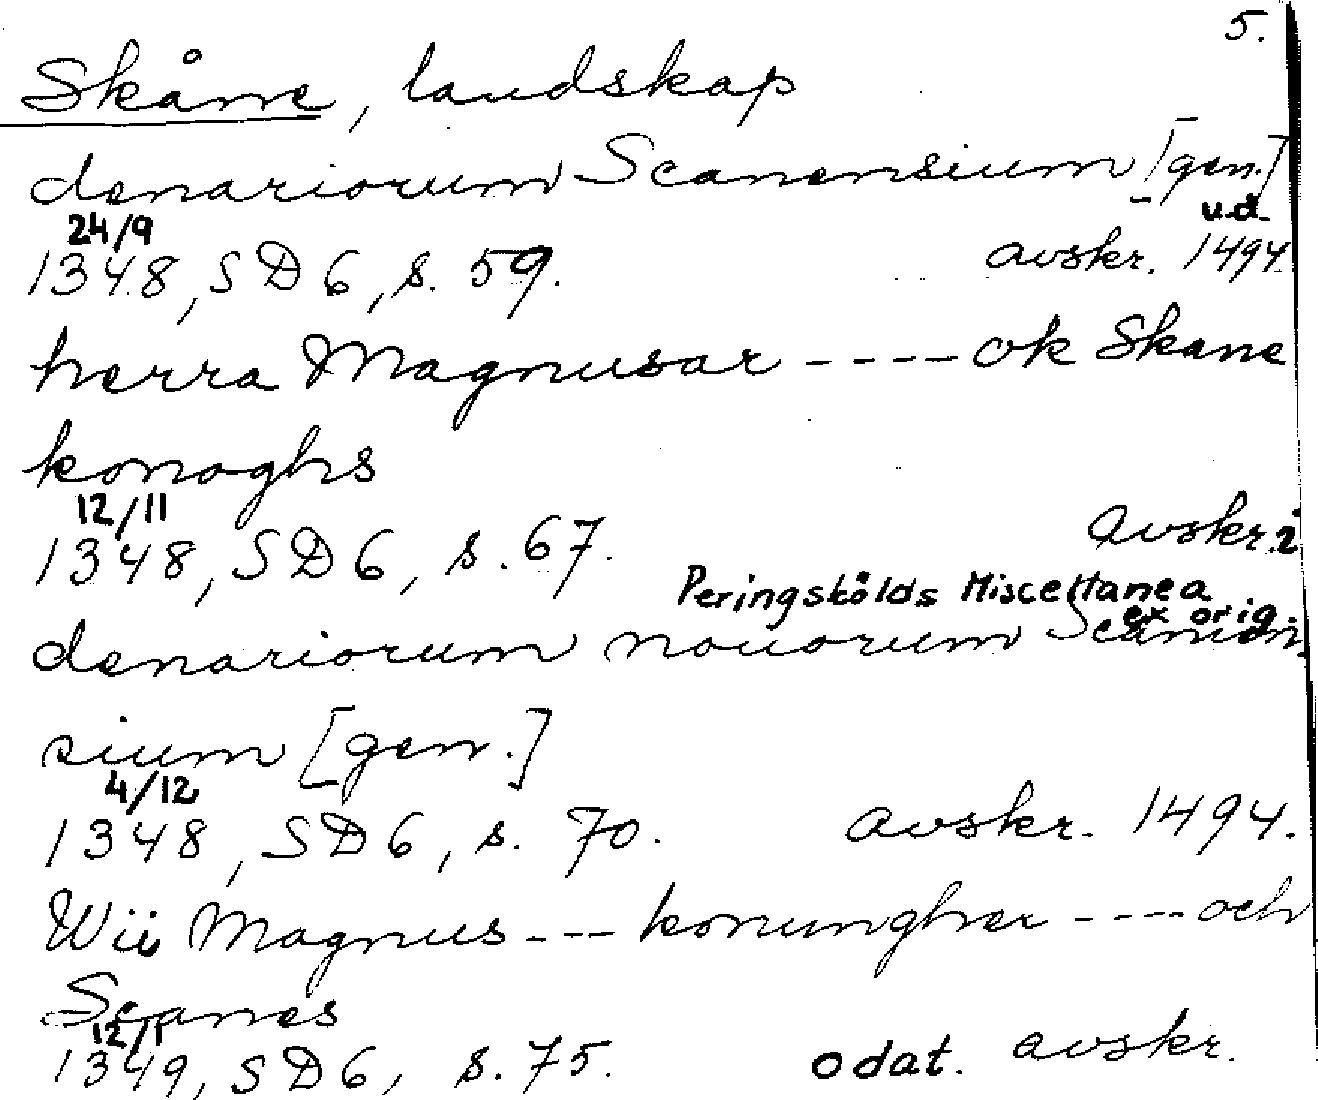 5.
Skåne, landskap
denariorum Scanensium [gen.]
24/9 u.d.
1348, SD 6, s. 59. avskr. 1494.
herra Magnusar ---- ok Skane
konoghs
12/11
1348, SD 6, s. 67. avskr. i
Peringskölds Miscellanea
ex orig.
denariorum nouorum Scanien-
sium [gen.]
4/12
1348, SD 6, s. 70. avskr. 1494.
Wii Magnus --- konungher ---- och
Scanes
12/1
1349, SD 6, s. 75. odat. avskr.